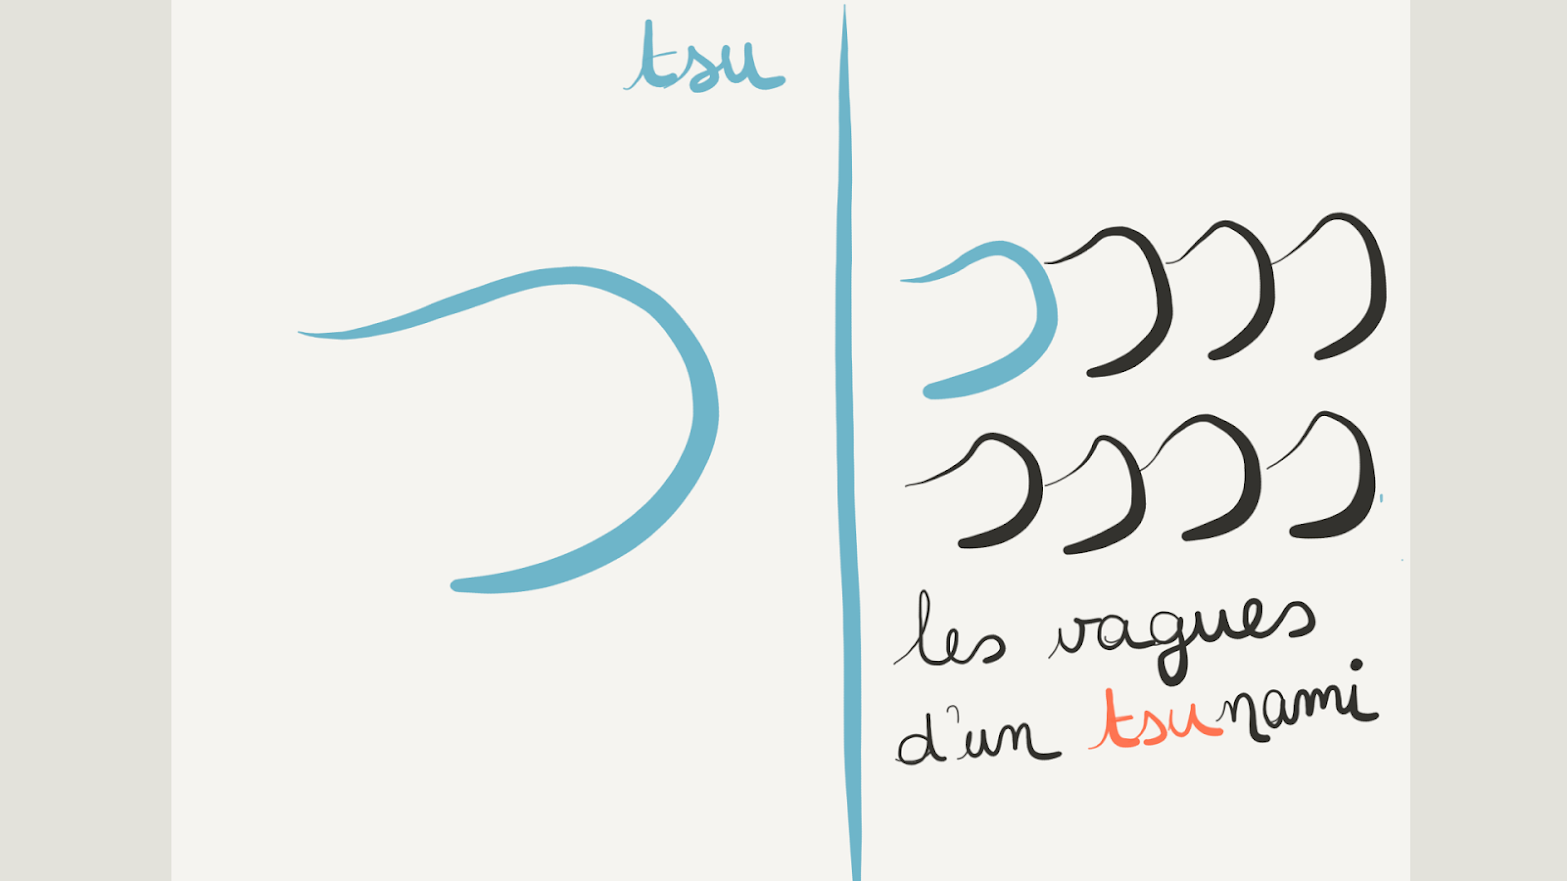 tsu
つ
つつつつ
つつつつ
les vagues
d'un tsunami